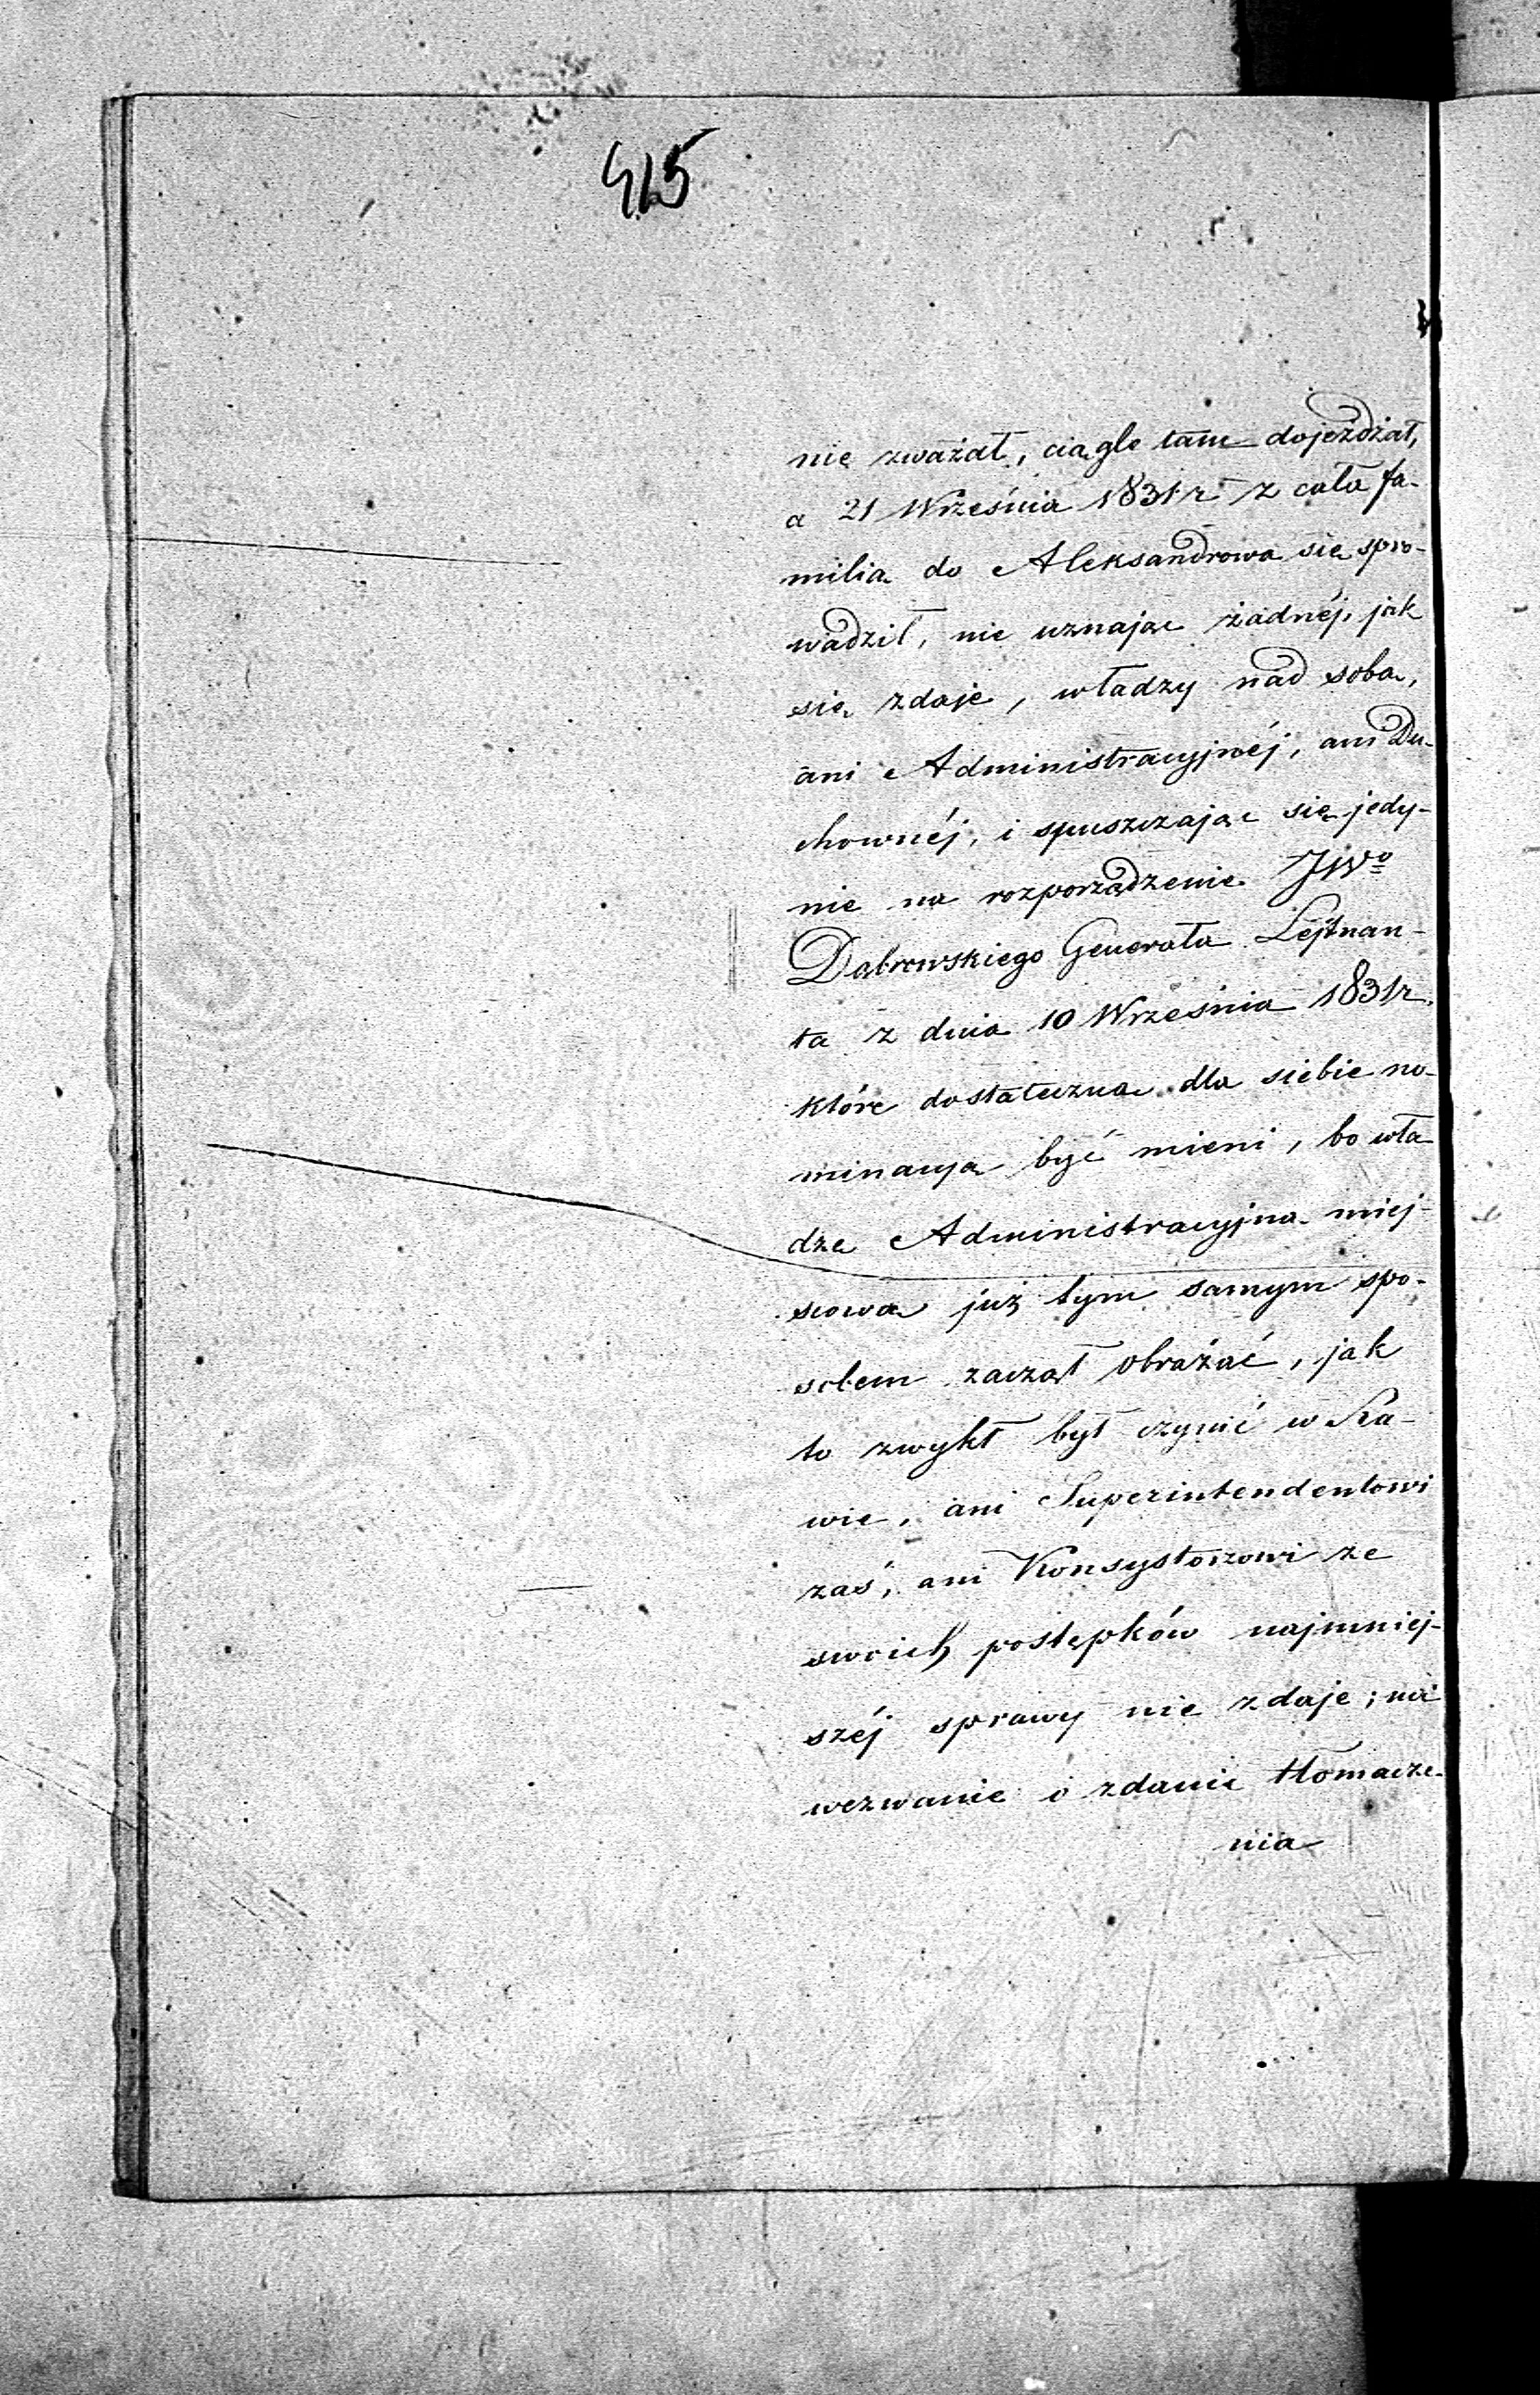 415
nie zważał, ciągle tam dojeżdżał,
a 21 Września 1831 r. z całą fa-
milią do Aleksandrowa się spro-
wadził, nie uznając żadnéj, jak
się zdaje, władzy nad sobą,
ani Administracyjnéj, ani Du-
chownéj, i spuszczając się jedy-
nie na rozporządzenie JWo
Dąbrowskiego Generała Lejtnan-
ta z dnia 10 Września 1831 r.
które dostateczną dla siebie no-
minacyą być mieni, bo wła-
dzę Administracyjną miej-
scową już tym samym spo-
sobem zaczął obrażać, jak
to zwykł był czynić w Ra-
wie, ani Superintendentowi
zaś, ani Konsystorzowi ze
swoich postępków najmniej-
széj sprawy nie zdaje; na
wezwanie o zdanie tłomacze-
nia